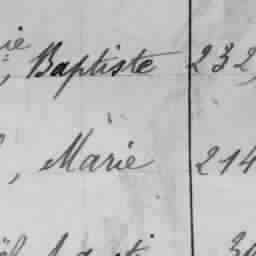 , Baptiste 232
, Marie 214